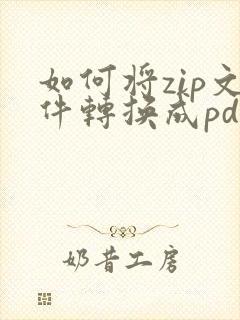 如何将zip文
件轉换成pd
奶昔工房